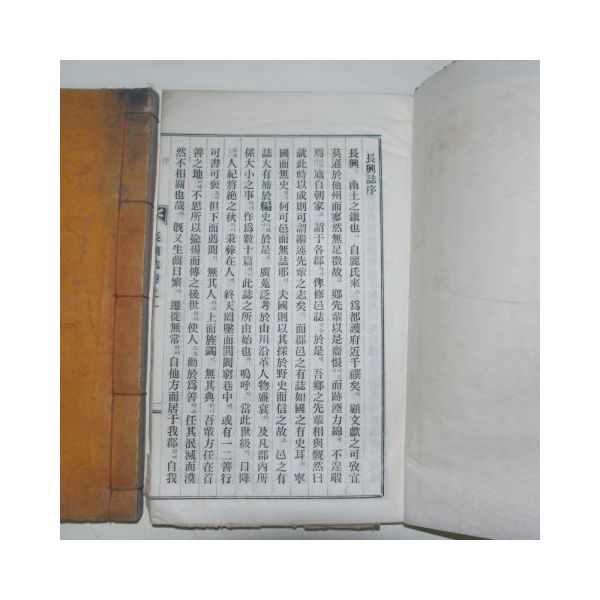 長興誌序
長興 南土之鎭也 自麗氏來 爲都護府近千禩矣 顧文獻之可攷宜
莫逕於他州而寥然無足徵故 鄕先輩以是齎恨 而跡湮力綿 不遑暇
焉 自朝家 詔于各郡 俾修邑誌 於是 吾鄕之先輩相與慨然曰
就此時以成則可謂繼述先輩之志矣 而郡邑之有誌如國之有史耳 寧
國而無史 何可邑而無誌耶 夫國則以其採於野史而信之故 邑之有
誌大有補於編史 於是 廣蒐泛考於山川沿革人物盛衰 及凡郡內所
係大小之事 作爲數十篇 此誌之所由始也 嗚呼 當此世級 日降
人紀將絶之秋 秉彝在人 終天罔墜而閭閻窮巷中 或有一二善行
可書可褒 但下而薦聞 無其人 上而旌獨 無其典 吾輩方任在首
善之地 不思所以揄揚而傳之後世 使人 勸於爲善 任其泯滅而漠
然不相關也哉 旣又生齒日繁 遷徙無常 自他方而居于我郡 自我
序
長興誌卷之一